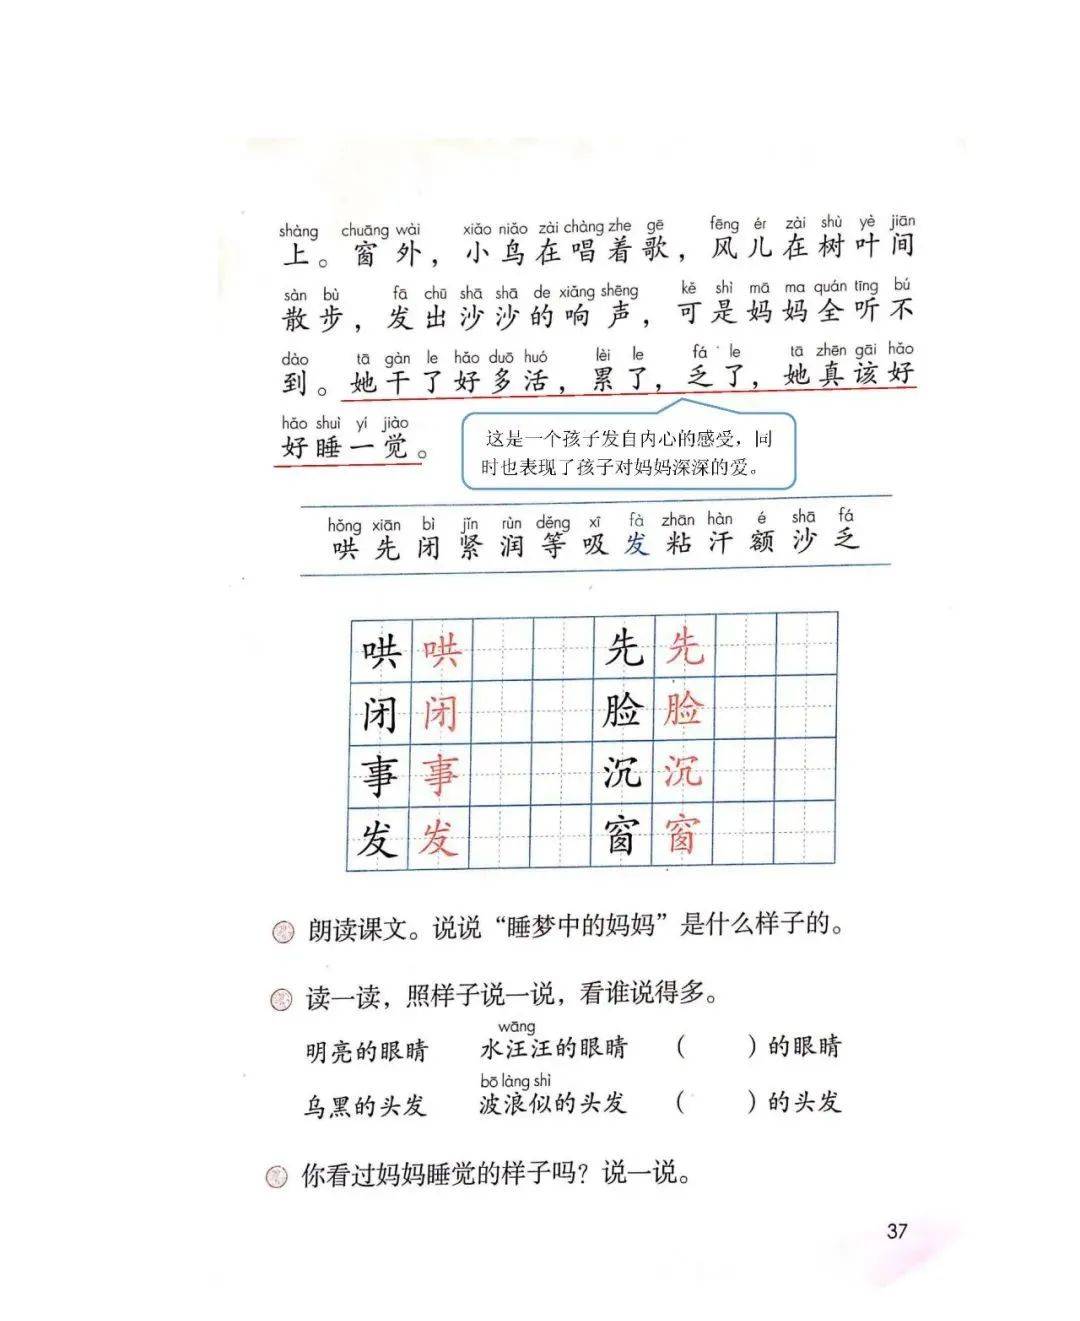 shàng chuāng wài xiǎo niǎo zài chàng zhe gē fēng ér zài shù yè jiān
上。窗外，小鸟在唱着歌，风儿在树叶间
sàn bù fā chū shā shā de xiǎng shēng kě shì mā ma quán tīng bú
散步，发出沙沙的响声，可是妈妈全听不
dào tā gàn le hǎo duō huó lèi le fá le tā zhēn gāi hǎo
到。她干了好多活，累了，乏了，她真该好
hǎo shuì yí jiào
好睡一觉。
这是一个孩子发自内心的感受，同
时也表现了孩子对妈妈深深的爱。
hǒng xiān bì jǐn rùn děng xī fà zhān hàn é shā fá
哄先闭紧润等吸发粘汗额沙乏
哄 哄 先 先
闭 闭 脸 脸
事 事 沉 沉
发 发 窗 窗
朗读课文。说说“睡梦中的妈妈”是什么样子的。
读一读，照样子说一说，看谁说得多。
wāng
明亮的眼睛 水汪汪的眼睛 （ ）的眼睛
bō làng shì
乌黑的头发 波浪似的头发 （ ）的头发
你看过妈妈睡觉的样子吗？说一说。
37